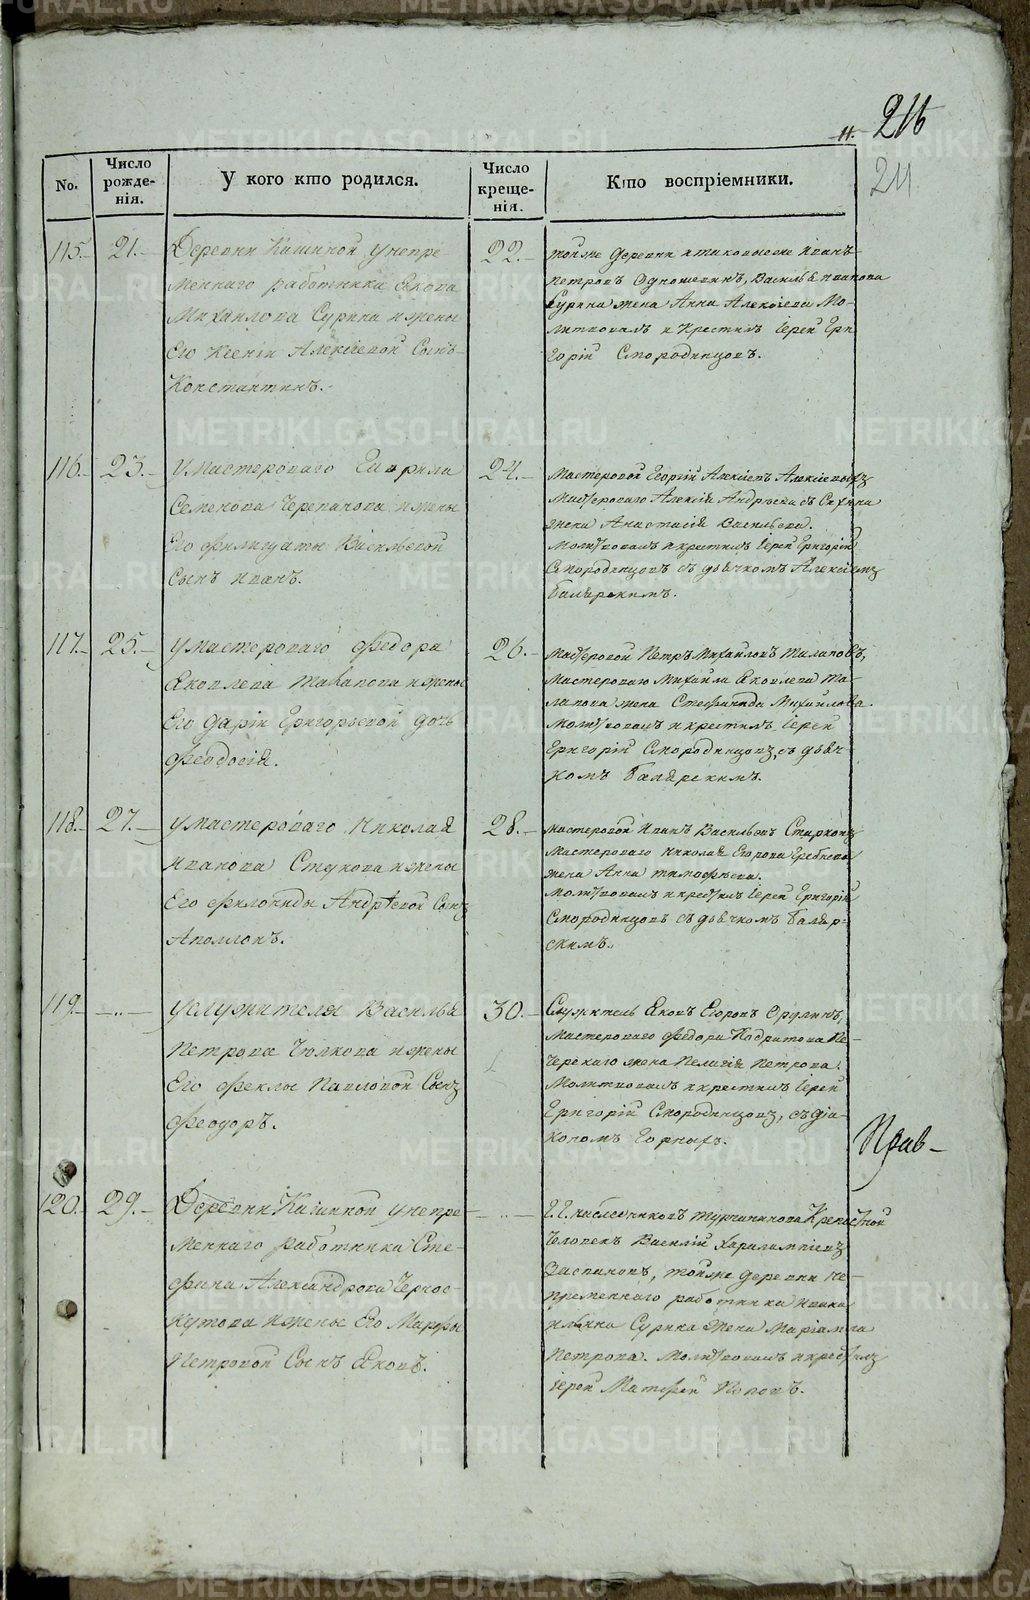 11. 216
211
No.
Число рожденія.
У кого кто родился.
Число крещенія.
Кто воспріемники.
115. 21. Деревни Кашиной у непре-
меннаго работника Якова
Михайлова Сурина и жены
Его Ксеніи Алексіевой Сынъ
Константинъ.
22. тойже деревни Иванъ
Петровъ Василья Иванова
Сурина жена Анна Алексіева Мо-
литвовалъ и Крестилъ Іерей Гри
горій Смородинцовъ.
116. 23. У мастероваго Гаврила
Семенова Черепанова и жены
Его Филицаты Васильевой
Сынъ Иванъ.
24. Мастеровой Георгій Алексіевъ
Мастероваго Алексія Андреева
жена Анастасія Васильева.
Молитвовалъ и крестилъ Іерей Григорій
Смородинцовъ съ дьячкомъ Алексіемъ
117. 25. У мастероваго Федора
Яковлева и жены
Его Дарьи Григорьевой дочь
Феодосія.
26. Мастеровой Петръ Михайловъ
Мастероваго Михаила Яковлева
жена Стефанида Михайлова
Молитвовалъ и крестилъ Іерей
Григорій Смородинцовъ, съ дьяч-
комъ
118. 27. У мастероваго Николая
Иванова Стукова и жены
Его Филониды Андреевой Сынъ
Аполлонъ.
28. Мастеровой Иванъ Васильевъ
Мастероваго Николая Егорова
жена Анна Тимофеева.
Молитвовалъ и крестилъ Іерей Григорій
Смородинцовъ съ дьячкомъ
119. -..- У служителя Василья
Петрова Чюлкова и жены
Его Феклы Павловой Сынъ
Феодоръ.
30. Служитель Яковъ Егоровъ
Мастероваго Федора
жена Пелагія Петрова.
Молитвовалъ и крестилъ Іерей
Григорій Смородинцовъ, съ діа-
кономъ
Прав-
120. 29. Деревни Кашиной у непре
меннаго работника Сте-
фана Александрова Чернос-
кутова и жены Его Марфы
Петровой Сынъ Яковъ.
-..- Г.Г. наследниковъ Турчанинова Крепостной
Человекъ Василій Харалампіевъ
тойже деревни не-
пременнаго работника Ивана
Ильина Сурина жена Маріамна
Петрова. Молитвовалъ и крестилъ
Іерей Матфей Поповъ.
METRIKI.GASO-URAL.RU